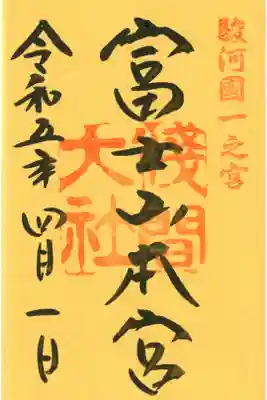 駿河國一之宮
富士山本宮
淺間大社
令和五年四月一日